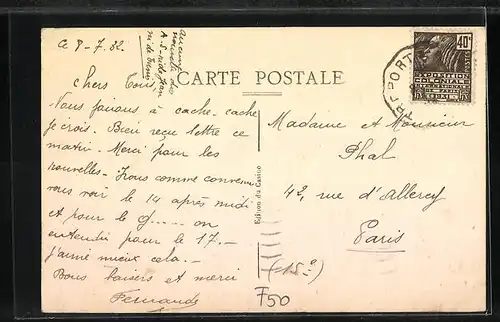 Ce 8-7.32.
Aucune
nouvelle de
A-S- ni de Jean
ni de
CARTE POSTALE
Chers Tous,
Nous faisons à cache-cache
je crois. Bien reçu lettre ce
matin. Merci pour les
nouvelles - Irons comme convenu
vous voir le 14 après midi
et pour le g..... on
entendu pour le 17.-
j'aime mieux cela.-
Bons baisers et merci
Fernande
Edition du Casino
TREPORT
40c
EXPOSITION
COLONIALE
INTERNATIONALE
PARIS 1931
Madame et Monsieur
Phal
42, rue d'Alleray
Paris
(15e)
F50